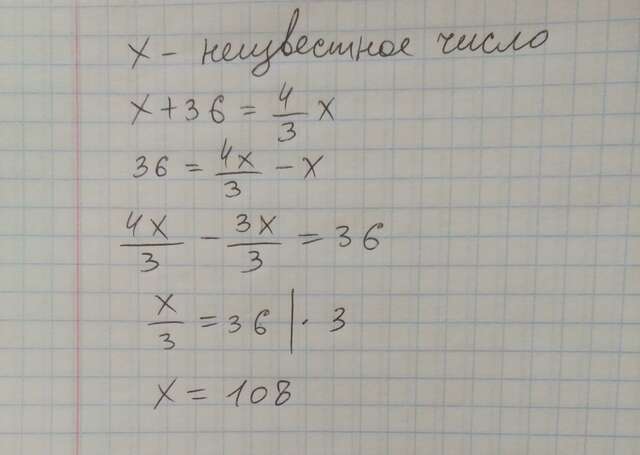 x - неизвестное число
x + 36 = 4/3 x
36 = 4x/3 - x
4x/3 - 3x/3 = 36
x/3 = 36 | · 3
x = 108